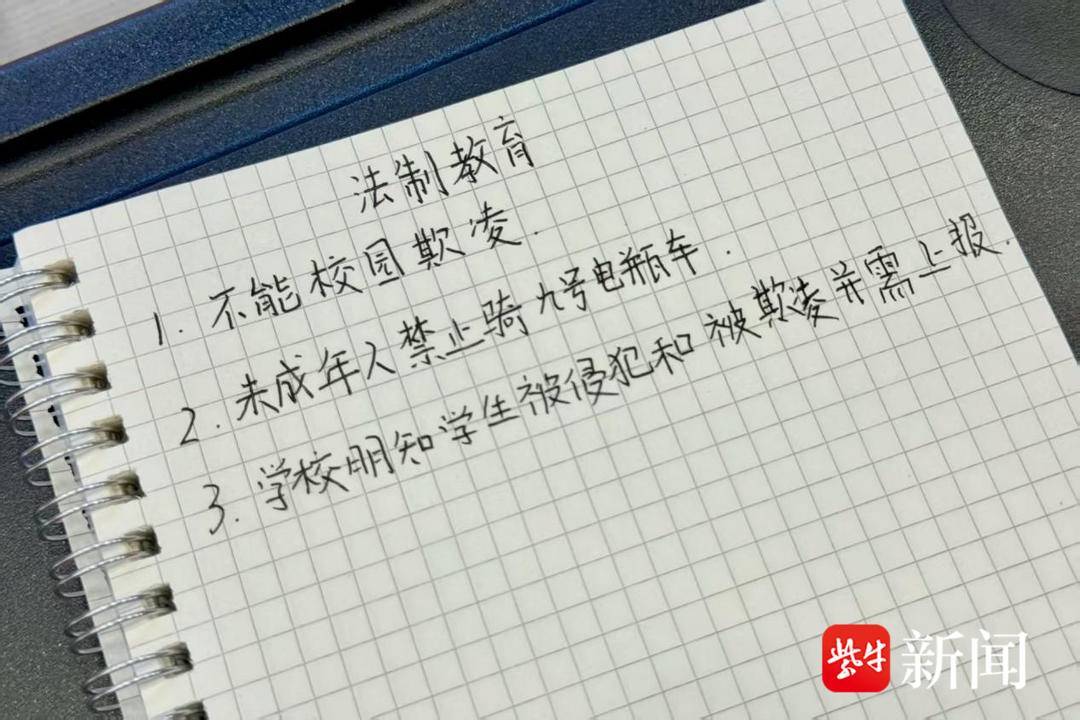 法制教育
1. 不能校园欺凌.
2. 未成年人禁止骑九号电瓶车.
3. 学校明知学生被侵犯和被欺凌并需上报.
紫牛新闻